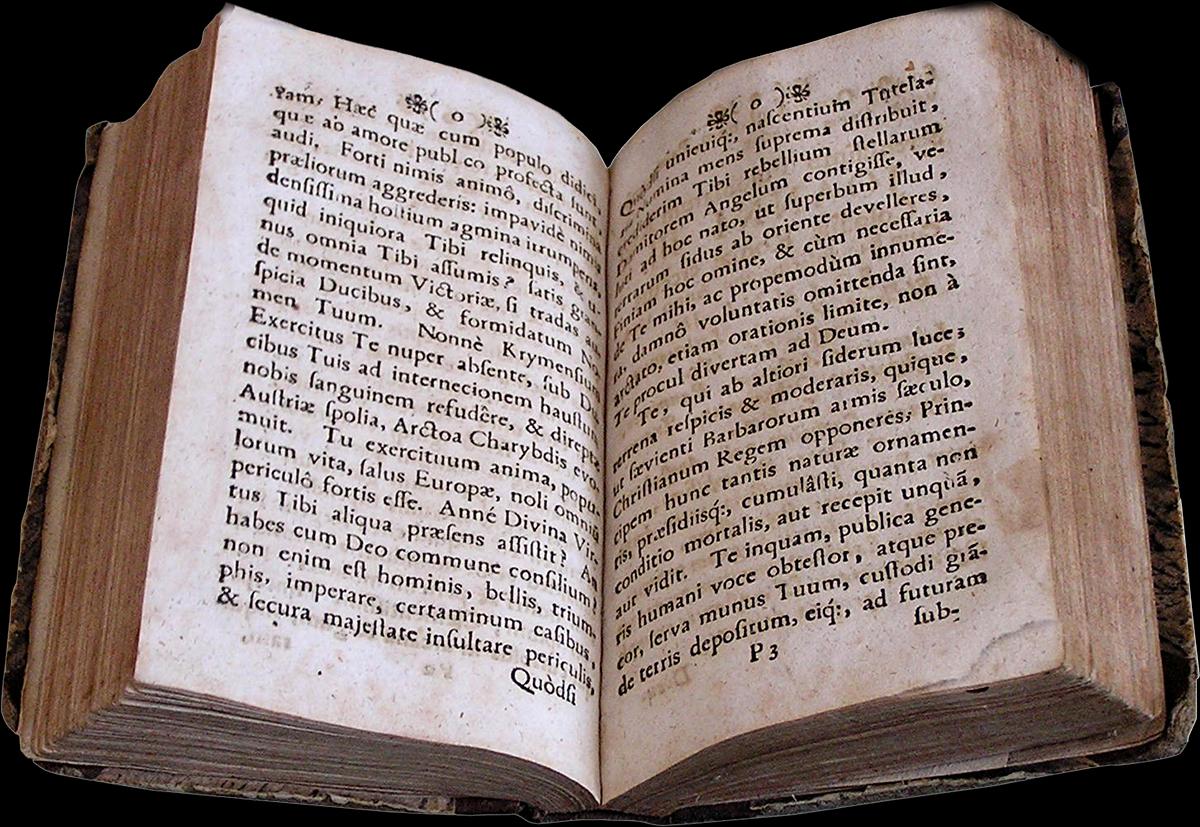 ( o )
tam. Hæc quæ cum populo didici,
quæ ab amore publico profecta sunt
audi. Forti nimis animô, discrimina
præliorum aggrederis: impavidè nimis
densissima hostium agmina irrumpens,
quid iniquiora Tibi relinquis, & u-
nus omnia Tibi assumis? satis gran-
de momentum Victoriæ, si tradas au-
spicia Ducibus, & formidatum No-
men Tuum. Nonnè Krymensium
Exercitus Te nuper absente, sub Du-
cibus Tuis ad internecionem haustum
nobis sanguinem refudêre, & direpta
Austriæ spolia, Arctoa Charybdis evo-
muit. Tu exercituum anima, popu-
lorum vita, salus Europæ, noli omniũ
periculô fortis esse. Anné Divina Vir-
tus Tibi aliqua præsens assistit? An
habes cum Deo commune consilium?
non enim est hominis, bellis, trium-
phis, imperare, certaminum casibus,
& secura majestate insultare periculis,
Quòdsi
( o )
Quòdsi unicuiq;, nascentium Tutela-
Numina mens suprema distribuit,
crediderim Tibi rebellium stellarum
Domitorem Angelum contigisse, ve-
ad hoc nato, ut superbum illud,
sidus ab oriente develleres,
Finiam hoc omine, & cùm necessaria
de Te mihi, ac propemodùm innume-
ra, damnô voluntatis omittenda sint,
arctato, etiam orationis limite, non à
Te procul divertam ad Deum.
Te, qui ab altiori siderum luce;
terrena respicis & moderaris, quique,
ut sævienti Barbarorum armis sæculo,
Christianum Regem opponeres; Prin-
cipem hunc tantis naturæ ornamen-
tis, præsidiisq;, cumulâsti, quanta non
conditio mortalis, aut recepit unquã,
aut vidit. Te inquam, publica gene-
ris humani voce obtestor, atque pre-
cor, serva munus Tuum, custodi grã-
de terris depositum, eiq;, ad futuram
P 3
sub-